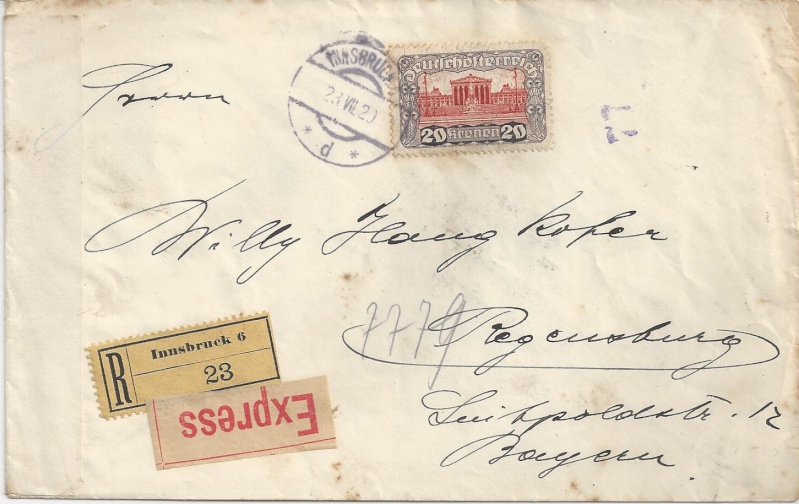 INNSBRUCK
23.VII.20
* d *
Deutschösterreich
20 Kronen 20
Herrn
Willy Hangkofer
7779
Regensburg
Luitpoldstr. 12
Bayern
R
Innsbruck 6
23
Express